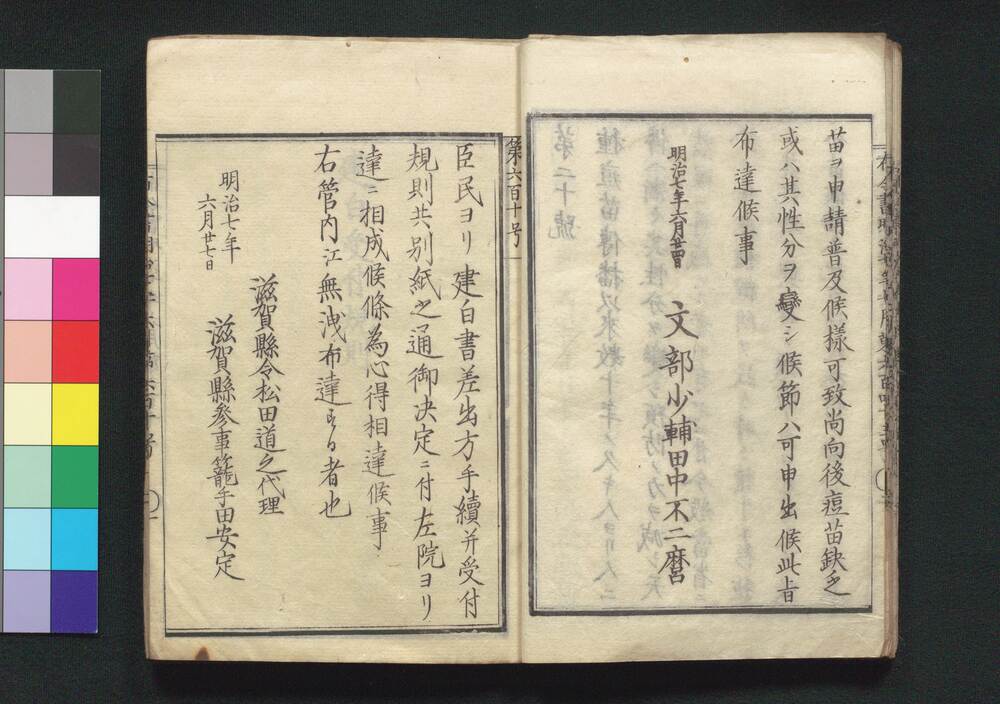 苗ヲ申請普及候樣可致尚向後痘苗缺乏
或ハ其性分ヲ變シ候節ハ可申出候此旨
布達候事
明治七年六月廿四日
文部少輔田中不二麿
第六百十号
臣民ヨリ建白書差出方手續幷受付
規則共別紙之通御决定ニ付左院ヨリ
達ニ相成候條為心得相達候事
右管内江無洩布達する者也
明治七年
六月廿七日
滋賀縣令松田道之代理
滋賀縣參事籠手田安定